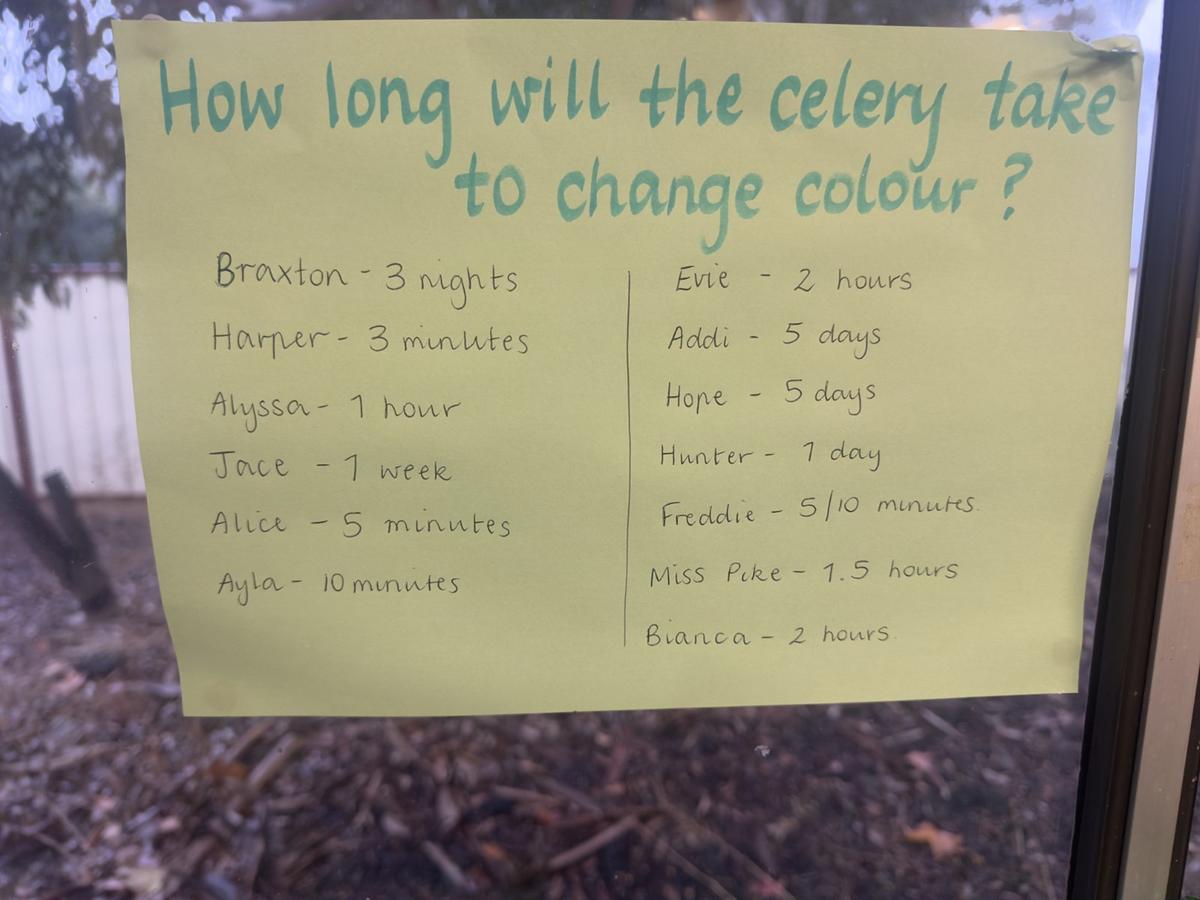 How long will the celery take
to change colour ?
Braxton - 3 nights
Harper - 3 minutes
Alyssa - 1 hour
Jace - 1 week
Alice - 5 minutes
Ayla - 10 minutes
Evie - 2 hours
Addi - 5 days
Hope - 5 days
Hunter - 1 day
Freddie - 5/10 minutes.
Miss Pike - 1.5 hours
Bianca - 2 hours.